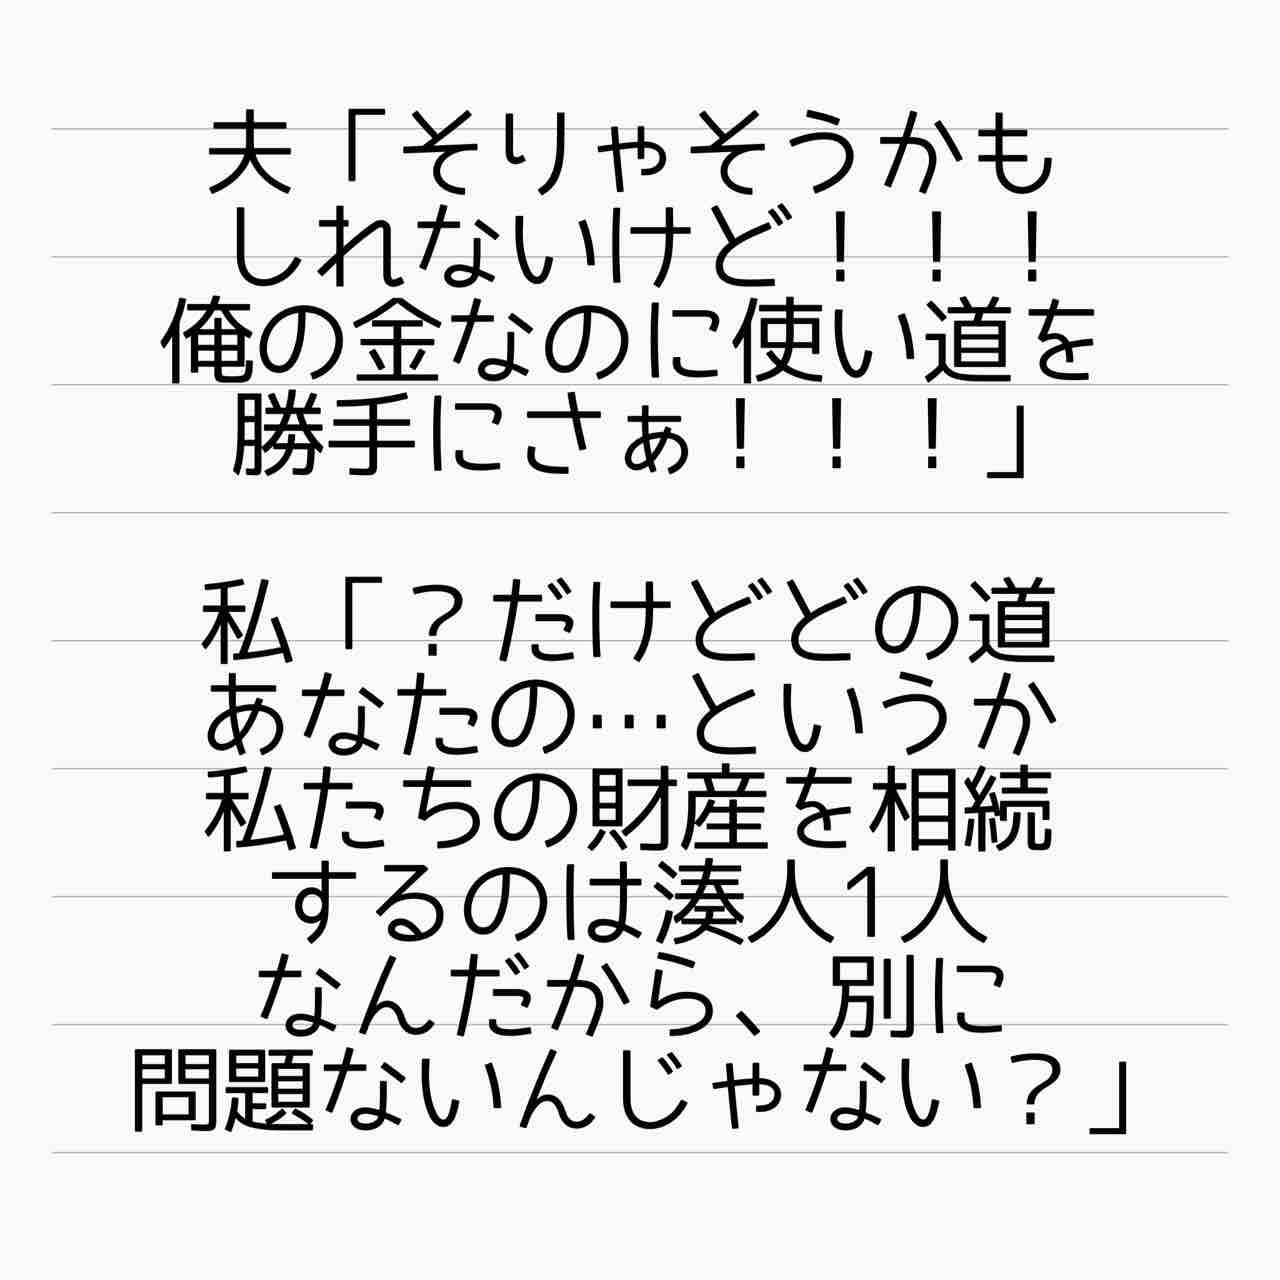 夫「そりゃそうかも
しれないけど！！！
俺の金なのに使い道を
勝手にさぁ！！！」
私「？だけどどの道
あなたの…というか
私たちの財産を相続
するのは湊人1人
なんだから、別に
問題ないんじゃない？」